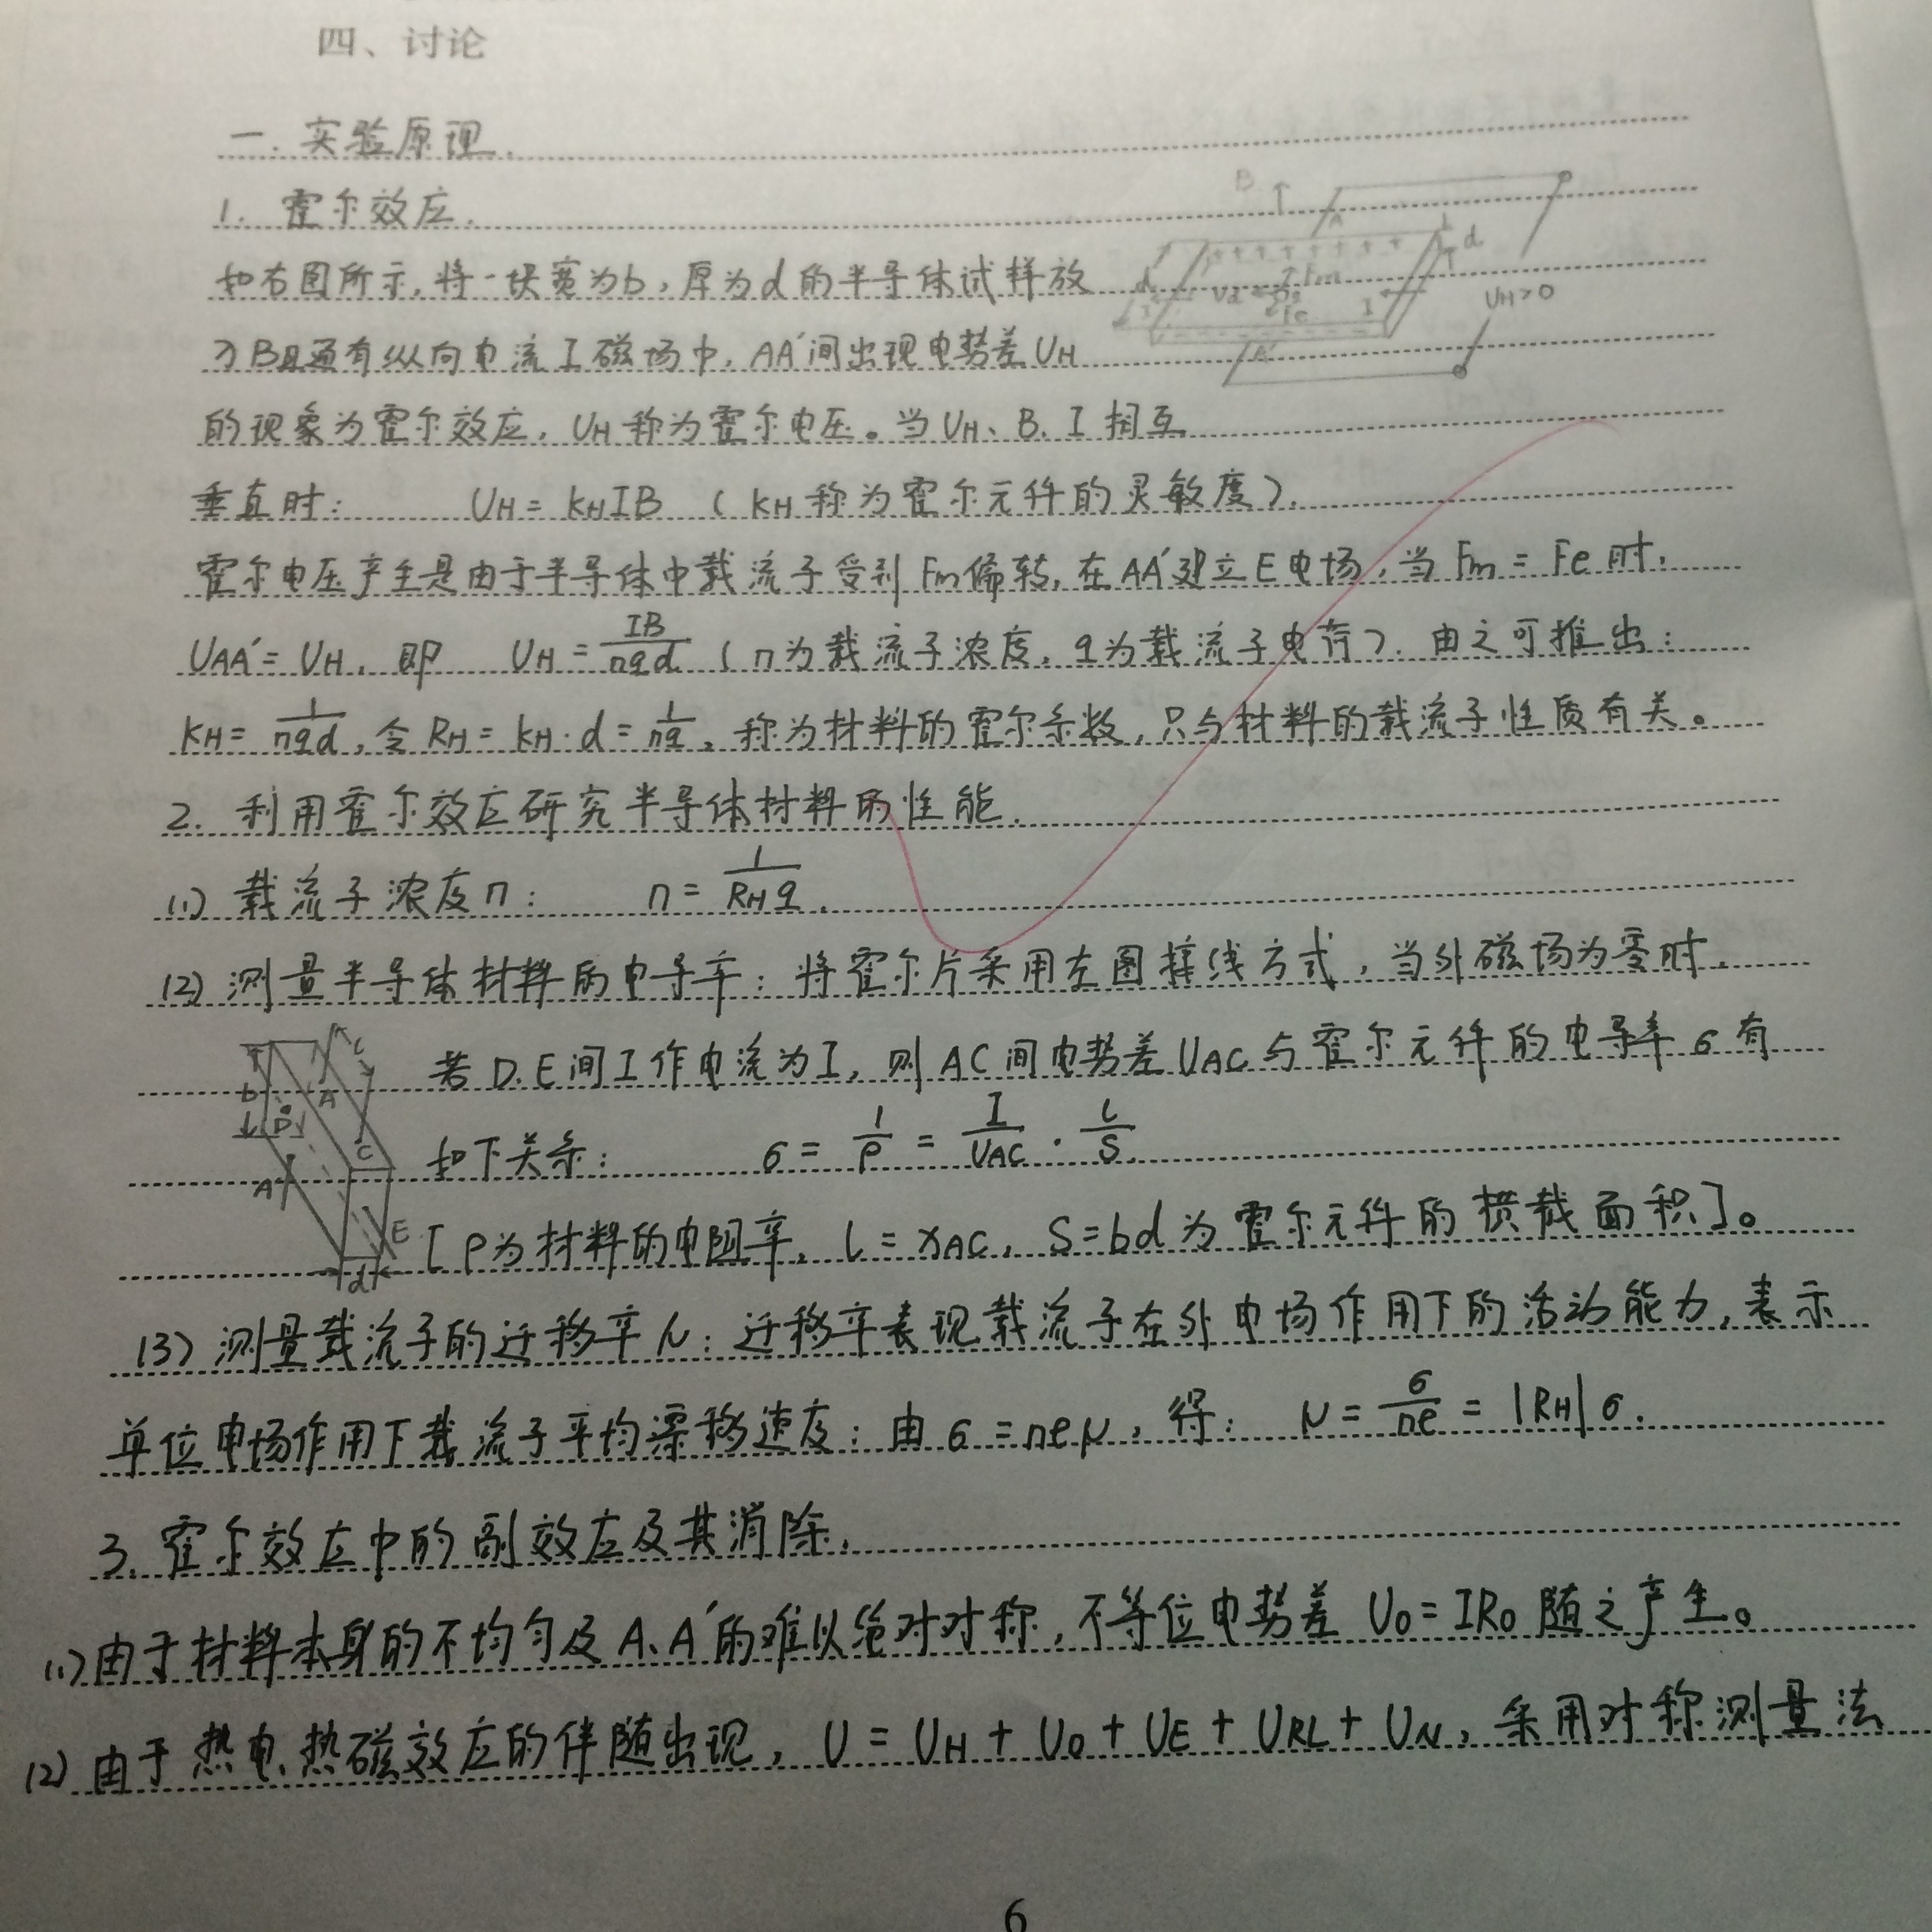 四、讨论
一. 实验原理.
1. 霍尔效应.
如右图所示, 将一块宽为b, 厚为d的半导体试样放
为B且通有纵向电流I磁场中, AA′间出现电势差UH
的现象为霍尔效应, UH称为霍尔电压。当UH、B、I相互
垂直时: UH = KHIB (KH称为霍尔元件的灵敏度).
霍尔电压产生是由于半导体中载流子受到Fm偏转, 在AA′建立E电场, 当Fm = Fe时,
UAA′ = UH, 即 UH = IB/nqd (n为载流子浓度, q为载流子电荷). 由之可推出:
KH = 1/nqd, 令RH = KH·d = 1/nq, 称为材料的霍尔系数, 只与材料的载流子性质有关。
2. 利用霍尔效应研究半导体材料的性能.
(1) 载流子浓度n: n = 1/RHq.
(2) 测量半导体材料的电导率: 将霍尔片采用左图接线方式, 当外磁场为零时,
若D、E间工作电流为I, 则AC间电势差UAC与霍尔元件的电导率σ有
如下关系: σ = 1/ρ = I/UAC · l/S.
[ρ为材料的电阻率, l = xAC, S = bd为霍尔元件的横截面积]。
(3) 测量载流子的迁移率μ: 迁移率表现载流子在外电场作用下的活动能力, 表示
单位电场作用下载流子平均漂移速度: 由σ = neμ, 得: μ = σ/ne = |RH|σ.
3. 霍尔效应中的副效应及其消除.
(1) 由于材料本身的不均匀及A、A′的难以绝对对称, 不等位电势差U0 = IR0随之产生。
(2) 由于热电、热磁效应的伴随出现, U = UH + U0 + UE + URL + UN, 采用对称测量法
B
A
d
Fm
Vd
Fe
I
UH>0
A′
b
l
A
D
C
A′
E
d
6